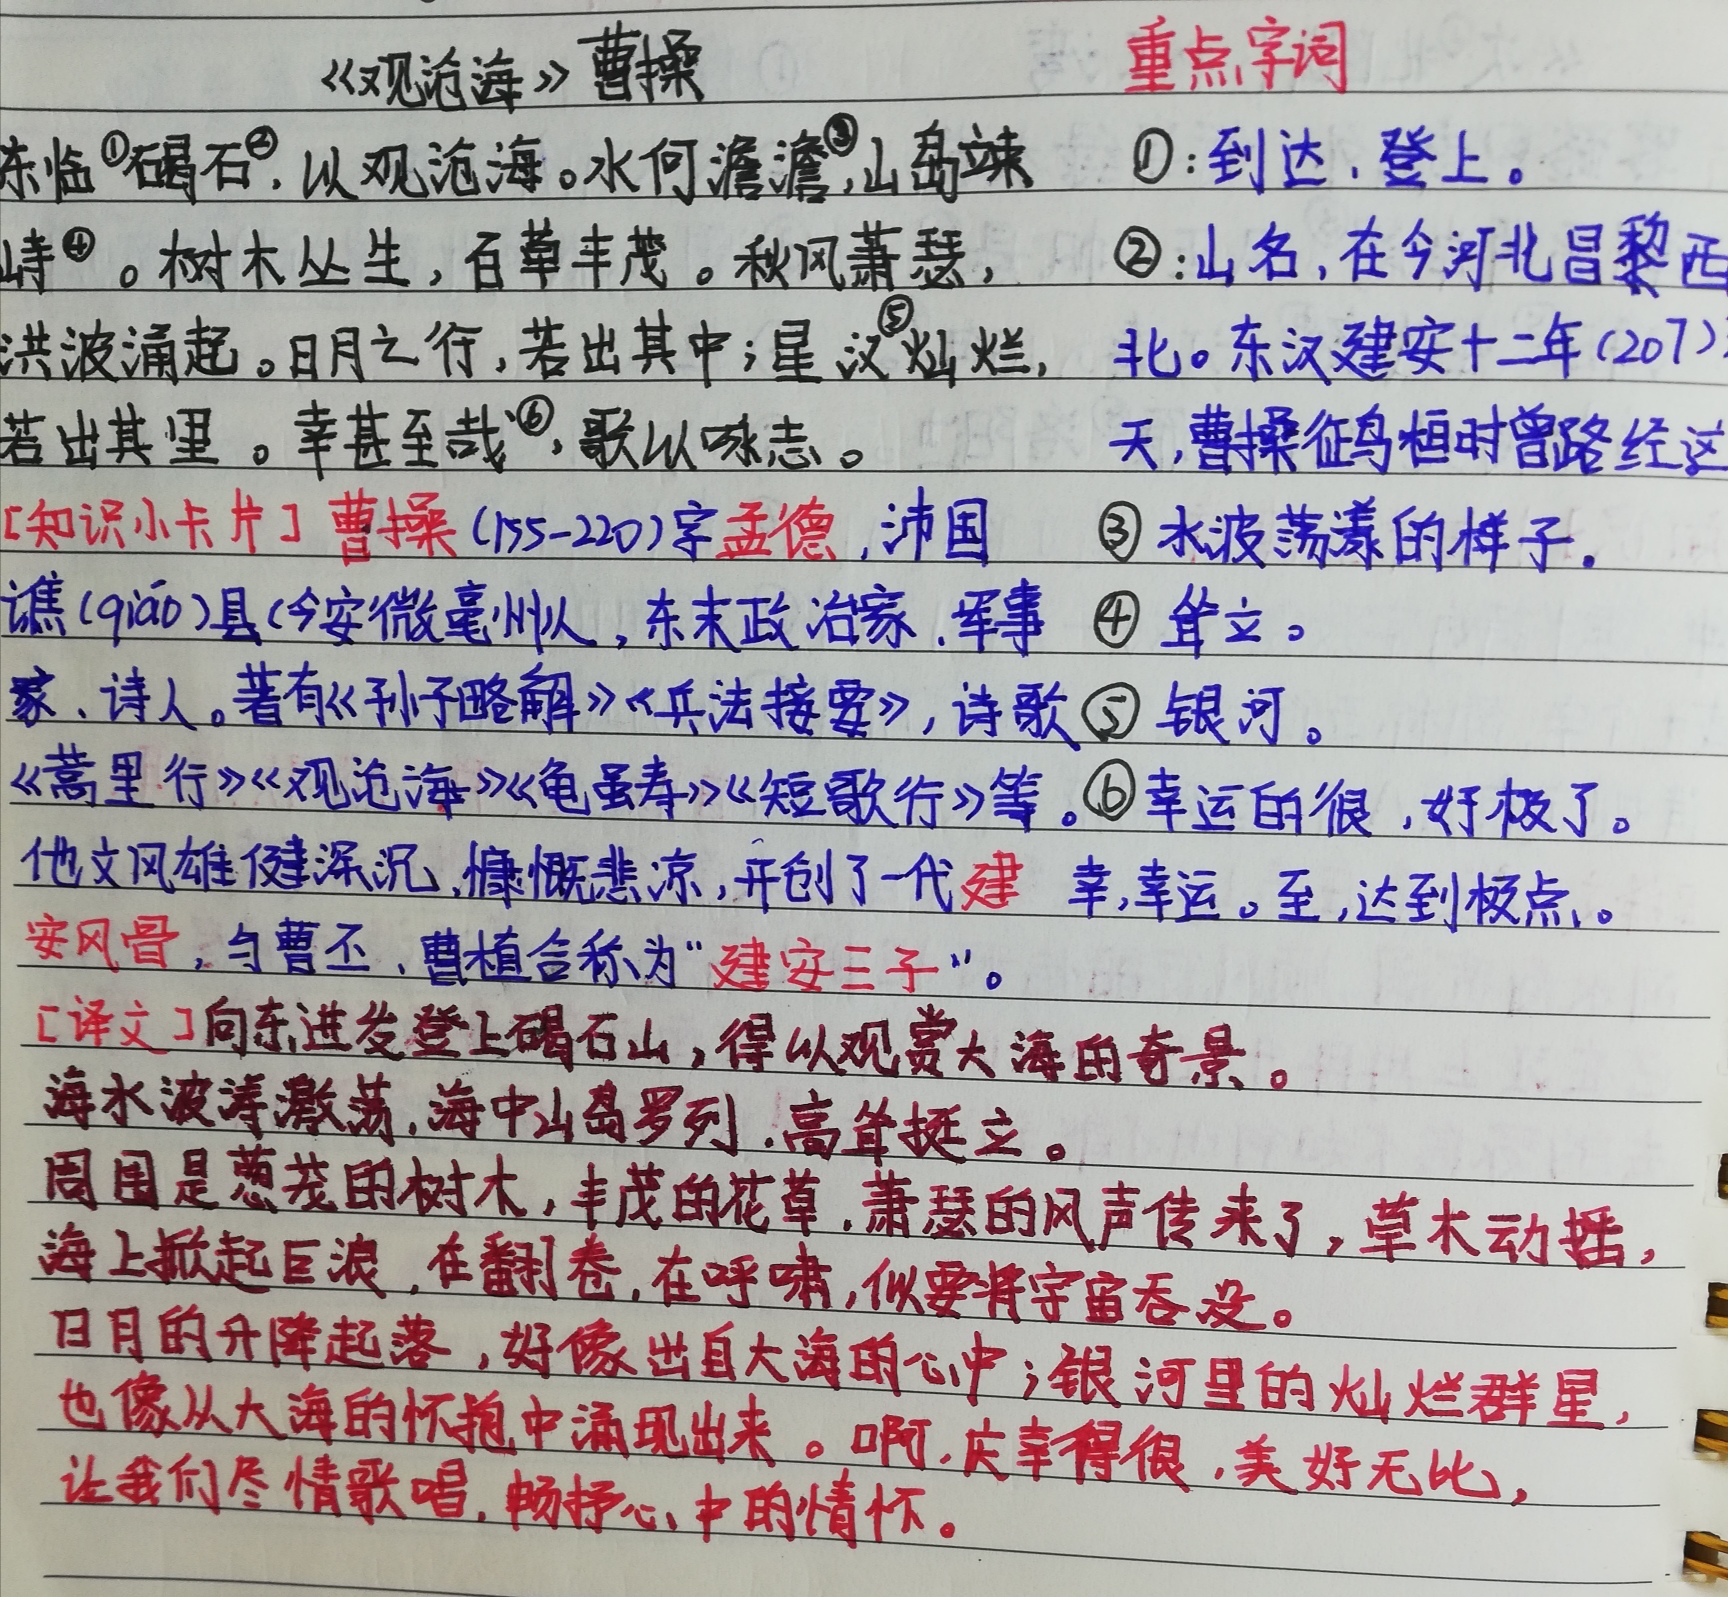 《观沧海》曹操
重点字词
东临①碣石②,以观沧海。水何澹澹③,山岛竦
峙④。树木丛生,百草丰茂。秋风萧瑟,
洪波涌起。日月之行,若出其中;星汉⑤灿烂,
若出其里。幸甚至哉⑥,歌以咏志。
①:到达、登上。
②:山名,在今河北昌黎西
北。东汉建安十二年(207)
天,曹操征乌桓时曾路经这
③水波荡漾的样子.
④耸立。
⑤银河。
⑥幸运的很,好极了。
幸,幸运。至,达到极点。
[知识小卡片]曹操(155-220)字孟德,沛国
谯(qiáo)县(今安微毫州人,东末政治家、军事
家、诗人。著有《孙子略解》《兵法接要》,诗歌
《蒿里行》《观沧海》《龟虽寿》《短歌行》等。
他文风雄健深沉,慷慨悲凉,开创了一代建
安风骨,与曹丕、曹植合称为“建安三子”。
[译文]向东进发登上碣石山,得以观赏大海的奇景。
海水波涛激荡,海中山岛罗列,高耸挺立。
周围是葱茏的树木,丰茂的花草,萧瑟的风声传来了,草木动摇,
海上掀起巨浪,在翻卷,在呼啸,似要将宇宙吞没。
日月的升降起落,好像出自大海的心中;银河里的灿烂群星,
也像从大海的怀抱中涌现出来。啊,庆幸得很,美好无比,
让我们尽情歌唱,畅抒心中的情怀。